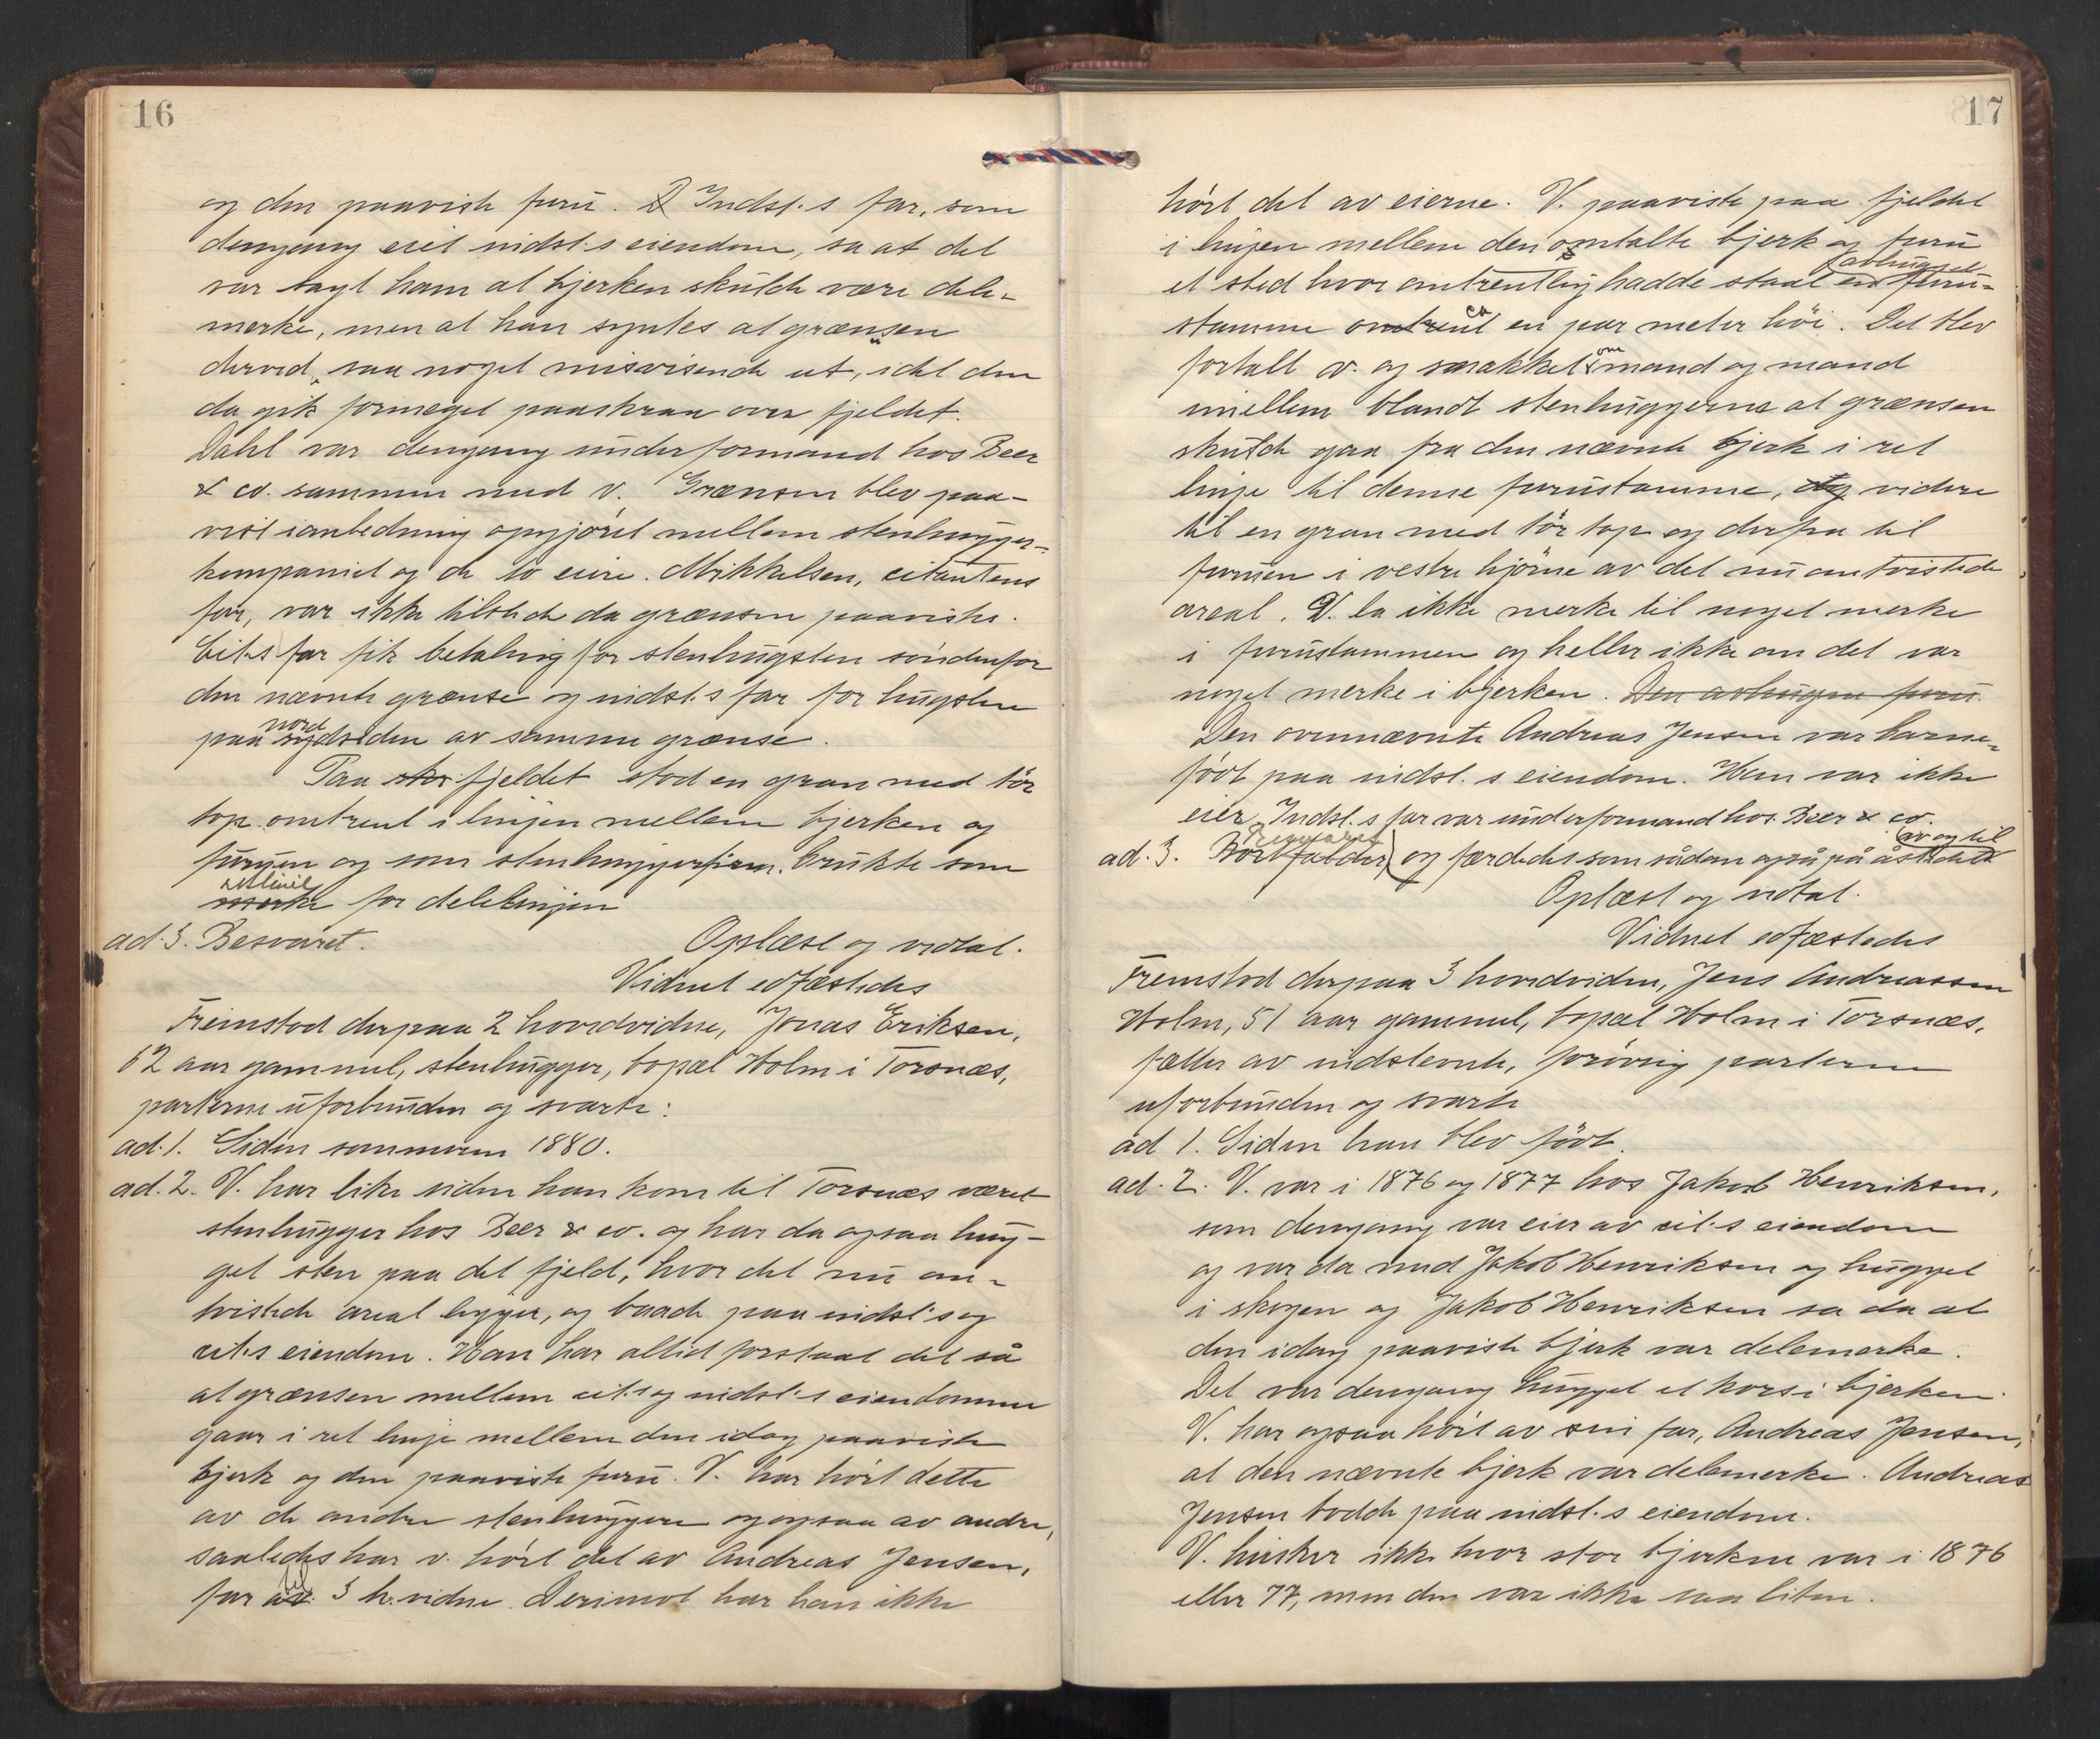 16
og den paaviste furu. Indst.s far, som
dengang eiet indst.s eiendom, sa at det
var sagt ham at bjerken skulde være dele-
merke, men at han syntes at grænsen
derved saa noget misvisende ut, idet den
da gik formeget paaskraa over fjeldet.
Dahl var dengang underformand hos Beer
& co. sammen med v. Grænsen blev paa-
vist i anledning opgjøret mellem stenhugger-
kompaniet og de to eiere. Mikkelsen, citantens
far, var ikke tilstede da grænsen paavistes.
Cit.s far fik betaling for stenhugsten søndenfor
den nævnte grænse og indst.s far for hugsten
paa nordsiden av samme grænse.
Paa fjeldet stod en gran med tør
top omtrent i linjen mellem bjerken og
furuen og som stenhuggerfirm. brukte som
siktlinie for delelinjen
ad. 3. Besvaret.
Oplæst og vedtat.
Vidnet edfæstedes
Fremstod derpaa 2 hovedvidne, Jonas Eriksen,
62 aar gammel, stenhugger, bopæl Holm i Torsnæs,
parterne uforbunden og svarte:
ad. 1. Siden sommeren 1880.
ad. 2. V. har like siden han kom til Torsnæs været
stenhugger hos Beer & co. og har da ogsaa hug-
get sten paa det fjeld, hvor det nu om-
tvistede areal ligger, og baade paa indst.s og
cit.s eiendom. Han har altid forstaat det så
at grænsen mellem cit.s og indst.s eiendomme
gaar i ret linje mellem den idag paaviste
bjerk og den paaviste furu. V. har hørt dette
av de andre stenhuggere og ogsaa av andre,
saaledes har v. hørt det av Andreas Jensen,
far til 3 h.vidne. Derimot har han ikke
17
hørt det av eierne. V. paaviste paa fjeldet
i linjen mellem den omtalte bjerk og furu
et sted hvor omtrentlig hadde staat en avhugget furu-
stamme ca en par meter høi. Det blev
fortalt v. og snakket om mand og mand
imellem blandt stenhuggerne at grænsen
skulde gaa fra den nævnte bjerk i ret
linje til denne furustamme, og videre
til en gran med tør top og derfra til
furuen i vestre hjørne av det nu omtvistede
areal. V. la ikke merke til noget merke
i furustammen og heller ikke om det var
noget merke i bjerken. Den avhugne furu.
Den ovennævnte Andreas Jensen var barne-
født paa indst.s eiendom. Han var ikke
eier. Indst.s far var underformand hos Beer & co.
ad. 3. Bortfalder, Besvaret og færdedes som sådan også på åstedet av og til
Oplæst og vedtat.
Vidnet edfæstedes
Fremstod derpaa 3 hovedvidne, Jens Andreassen
Holm, 51 aar gammel, bopæl Holm i Torsnæs,
fætter av indstevnte, forøvrig parterne
uforbunden og svarte
ad 1. Siden han blev født.
ad. 2. V. var i 1876 og 1877 hos Jakob Henriksen,
som dengang var eier av cit.s eiendom
og var da med Jakob Henriksen og hugget
i skogen og Jakob Henriksen sa da at
den idag paaviste bjerk var delemerke.
Det var dengang hugget et kors i bjerken.
V. har ogsaa hørt av sin far, Andreas Jensen,
at den nævnte bjerk var delemerke. Andreas
Jensen bodde paa indst.s eiendom.
V. husker ikke hvor stor bjerken var i 1876
eller 77, men den var ikke saa liten.